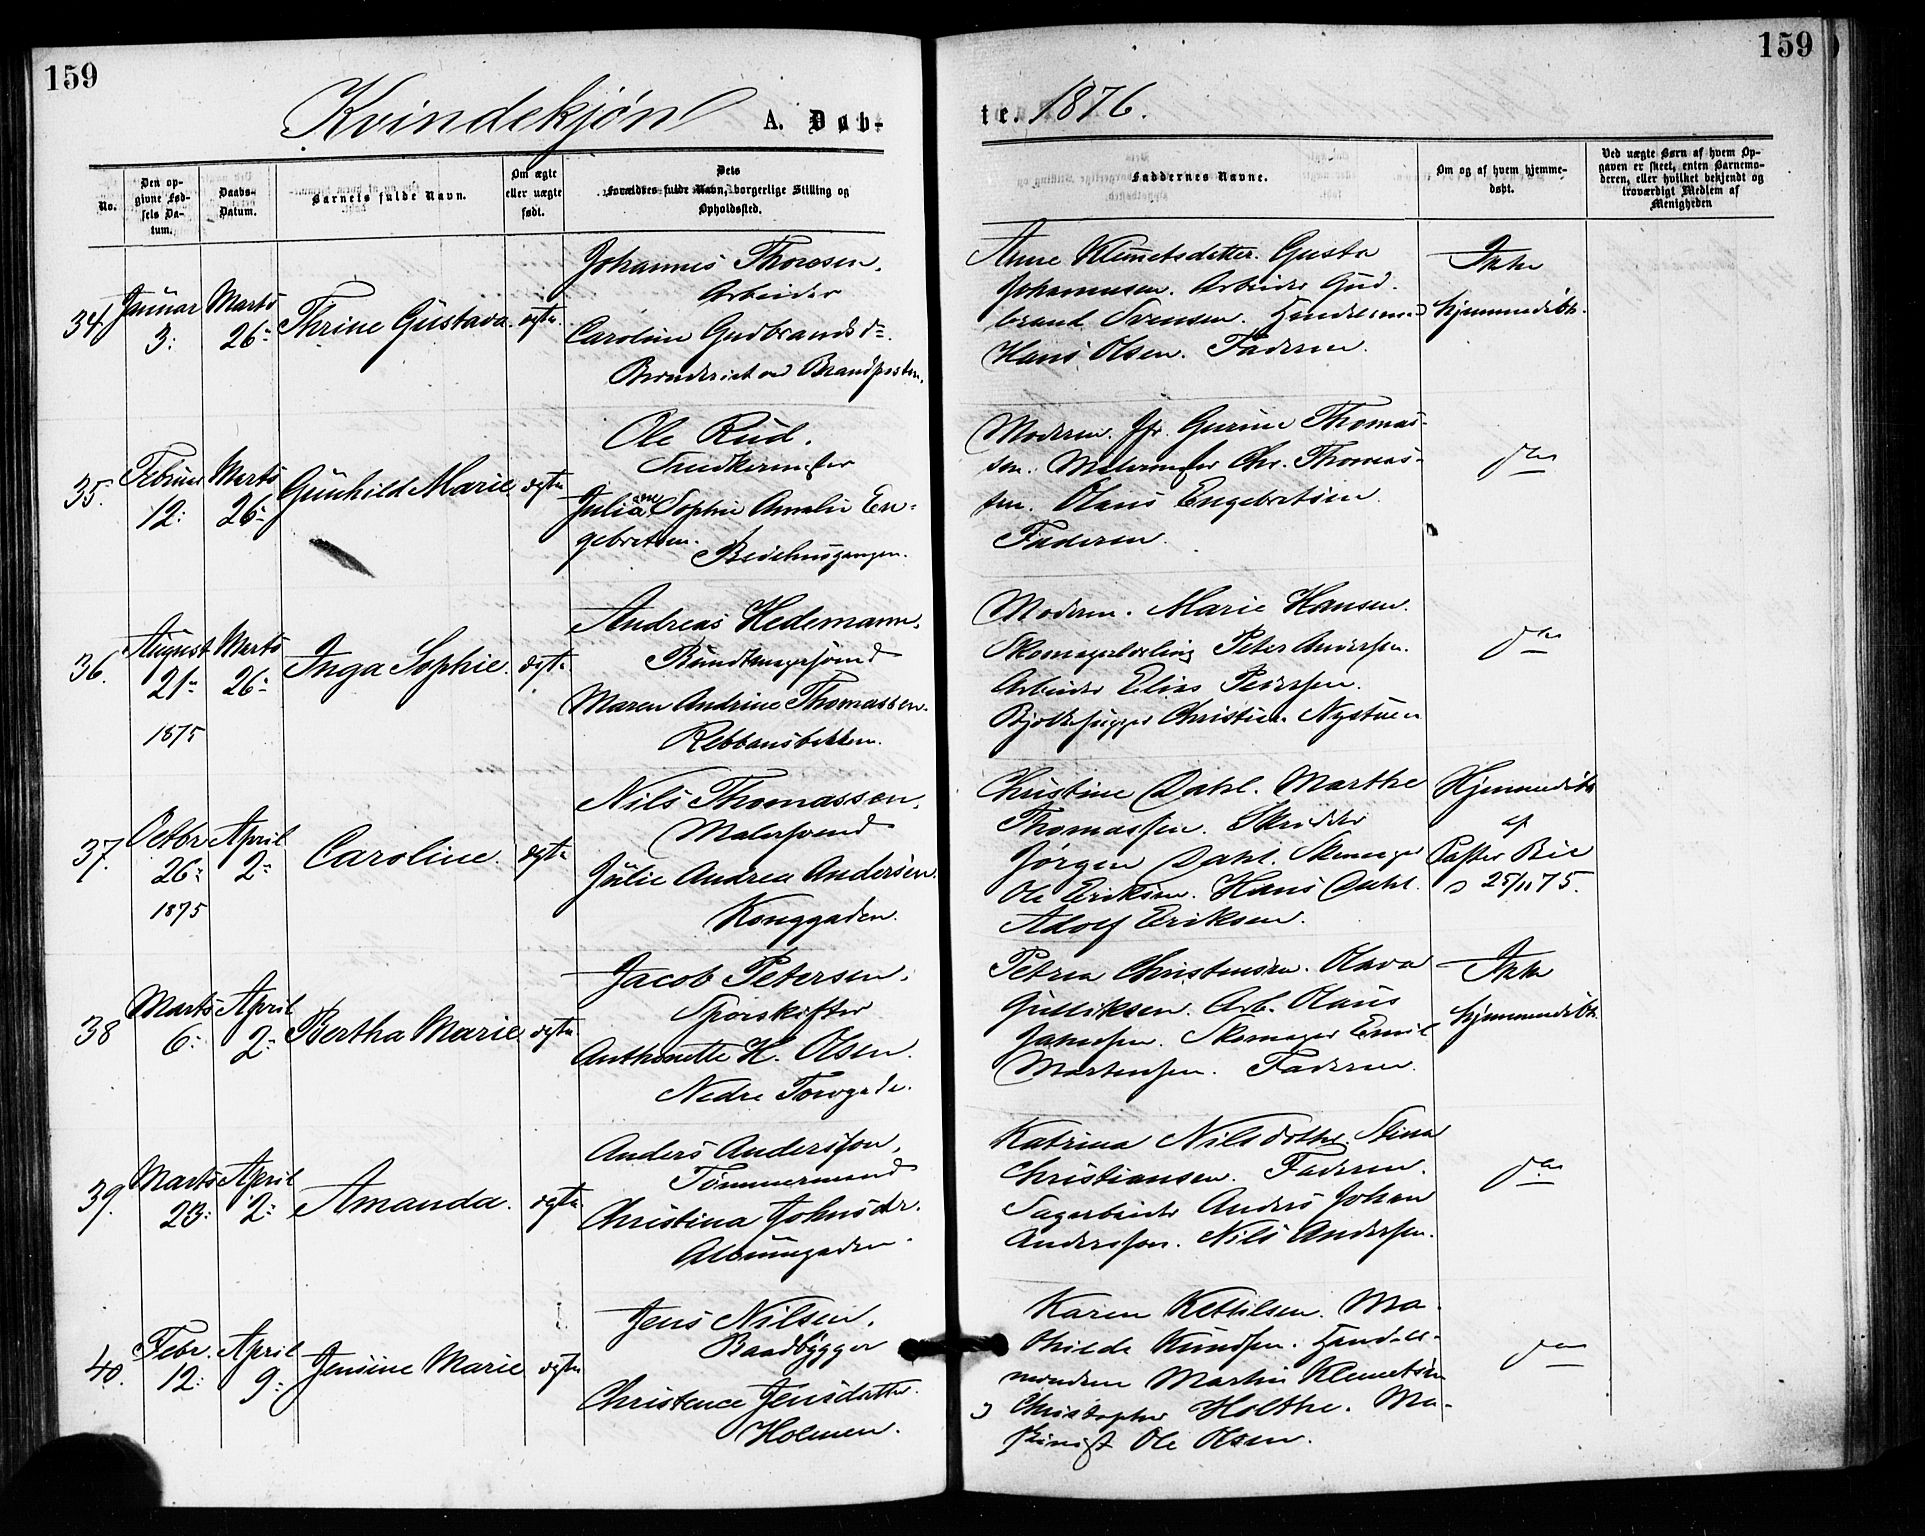 159
159
Kvindekjøn A. Døb-
te. 1876.
No.
Den op-
givne Fød-
sels Da-
tum.
Daabs-
Datum.
Barnets fulde Navn.
Om ægte
eller uægte
født.
Dets
Forældres fulde Navn, borgerlige Stilling og
Opholdssted.
Faddernes Navne.
Om og af hvem hjemme-
døbt.
Ved uægte Børn af hvem Op-
gaven er skeet, enten Barnemo-
deren, eller hvilket bekjendt og
troværdigt Medlem af
Menigheden
34.
Januar
3:
Marts
26:
Thrine Gustava.
ægte.
Johannes Thoresen.
Arbeider
Caroline Gudbrandsd.
Brandposten.
Anne Klemetsdatter. Gusta
Johannesen. Arbeider Gud-
brand Svensen.
Hans Olsen. Faderen.
Ikke
hjemmedøbt.
35.
Februar
12:
Marts
26:
Gunhild Marie
ægte
Ole Rud.
Snedkermester
Juliane Sophie Amalie En-
gebretsen.
Bedehusgangen.
Moderen. Jfr. Gurine Thomas-
sen. Malermester Chr. Thomas-
sen. Olaus Engebretsen.
Faderen.
do
36.
August
21:
1875
Marts
26:
Inga Sophie.
ægte
Andreas Hedemann.
Bundtmagersvend
Maren Andrine Thomassen.
Rebbansbakken.
Moderen. Marie Hansen.
Skomagerlærling Peter Andersen.
Arbeider Elias Pedersen.
Christian Nystuen
do
37.
Octbr
26:
1875
April
2:
Caroline.
ægte
Nils Thomassen.
Malersvend
Julie Andrea Andersen.
Konggaden.
Christine Dahl. Marthe
Thomassen. Skrædder
Jørgen Dahl. Skomager
Ole Eriksen. Hans Dahl.
Adolf Eriksen.
Hjemmedøbt
af
Pastor Bie
d 25/11 75.
38
Marts
6:
April
2:
Bertha Marie
ægte.
Jacob Petersen.
Sporskifter
Anthonette H. Olsen.
Nedre Torvgade.
Petrea Christensen. Olava
Gulliksen. Arb. Olaus
Jakobsen. Skomager Emil
Mortensen. Faderen.
Ikke
hjemmedøbt.
39.
Marts
23:
April
2:
Amanda.
ægte.
Anders Andersson.
Tømmermand
Christina Johnsdr.
Albumgaden.
Katrina Nilsdotter. Stina
Christiansen. Faderen.
Sagarbeider Anders Johan
Andersson. Nils Andersen.
do
40.
Febr.
12:
April
9:
Jensine Marie
ægte
Jens Nilsen.
Baadbygger
Christence Jensdatter.
Holmen.
Karen Kettilsen. Ma-
thilde Knudsen. Handels-
mændene Martin Klemetsen
d Christopher Holthe. Ma-
skinist Ole Olsen.
do